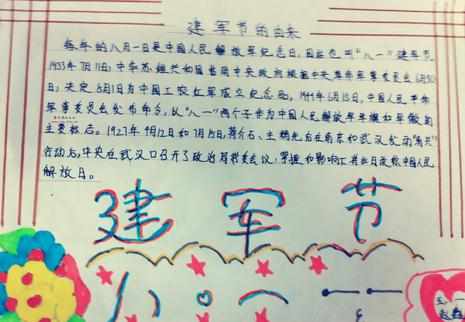 建军节的由来
每年的八月一日是中国人民解放军纪念日,因此也叫"八一"建军节
1933年7月11日,中华苏维共和国临时中央政府根据中央革命军事委员会6月30
日,决定8月1日为中国工农红军成立纪念日。1949年6月15日,中国人民革命
军事委员会发布命令,以"八一"两个字作为中国人民解放军军旗和军徽的
主要标志。1927年4月12日和7月15日,蒋介石、王精卫在南京和武汉发动"清
行动后,中央在武汉口召开了政治局会议,
解放日。
建 军 节
八一